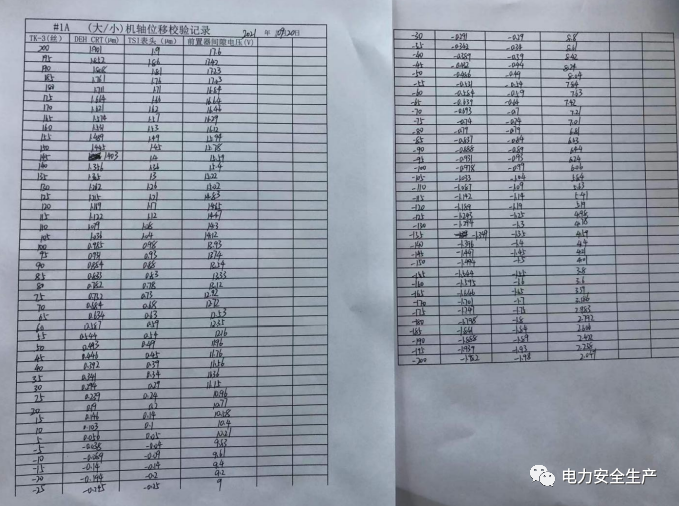 #1A (大/小)机轴位移校验记录 2021 年 10月20日
TK-3(丝) DEH CRT(μm) TSI表头(μm) 前置器间隙电压(V)
200 1.901 1.9 17.6
195 1.852 1.86 17.42
190 1.808 1.81 17.23
185 1.761 1.76 17.03
180 1.711 1.71 16.84
175 1.664 1.66 16.64
170 1.621 1.62 16.46
165 1.574 1.57 16.29
160 1.531 1.53 16.12
155 1.489 1.49 15.94
150 1.445 1.45 15.78
145 1.403 1.4 15.59
140 1.356 1.36 15.4
135 1.3 15.22
130 1.262 1.26 15.02
125 1.215 1.21 14.83
120 1.169 1.17 14.65
115 1.122 1.12 14.47
110 1.079 1.08 14.3
105 1.036 1.04 14.12
100 0.985 0.98 13.93
95 0.931 0.93 13.74
90 0.884 0.88 13.54
85 0.833 0.83 13.33
80 0.782 0.78 13.12
75 0.732 0.73 12.92
70 0.684 0.68 12.72
65 0.634 0.63 12.53
60 0.587 0.59 12.35
55 0.544 0.54 12.16
50 0.493 0.49 11.96
45 0.446 0.45 11.76
40 0.392 0.39 11.56
35 0.341 0.34 11.36
30 0.294 0.29 11.15
25 0.239 0.24 10.96
20 0.19 0.2 10.77
15 0.146 0.14 10.58
10 0.103 0.1 10.4
5 0.056 0.05 10.21
-5 -0.038 -0.04 9.83
-10 -0.089 -0.09 9.61
-15 -0.14 -0.14 9.4
-20 -0.194 -0.2 9.2
-25 -0.245 -0.25 9
-30 -0.291 -0.29 8.8
-35 -0.342 -0.34 8.61
-40 -0.389 -0.39 8.42
-45 -0.442 -0.44 8.24
-50 -0.486 -0.49 8.04
-55 -0.541 -0.54 7.84
-60 -0.584 -0.59 7.63
-65 -0.639 -0.64 7.42
-70 -0.693 -0.7 7.21
-75 -0.74 -0.74 7.01
-80 -0.79 -0.79 6.81
-85 -0.837 -0.84 6.63
-90 -0.888 -0.89 6.44
-95 -0.931 -0.93 6.24
-100 -0.978 -0.97 6.06
-105 -1.033 -1.04 5.84
-110 -1.087 -1.09 5.63
-115 -1.142 -1.14 5.41
-120 -1.189 -1.19 5.19
-125 -1.243 -1.25 4.98
-130 -1.294 -1.3 4.78
-135 -1.349 -1.35 4.59
-140 -1.396 -1.4 4.4
-145 -1.447 -1.45 4.21
-150 -1.494 -1.5 4.01
-155 -1.544 -1.55 3.8
-160 -1.595 -1.6 3.6
-165 -1.646 -1.65 3.37
-170 -1.701 -1.7
-175 -1.747 -1.75 2.983
-180 -1.798 -1.8 2.792
-185 -1.841 -1.84 2.606
-190 -1.888 -1.89 2.422
-195 -1.939 -1.93 2.238
-200 -1.982 -1.98 2.047
电力安全生产